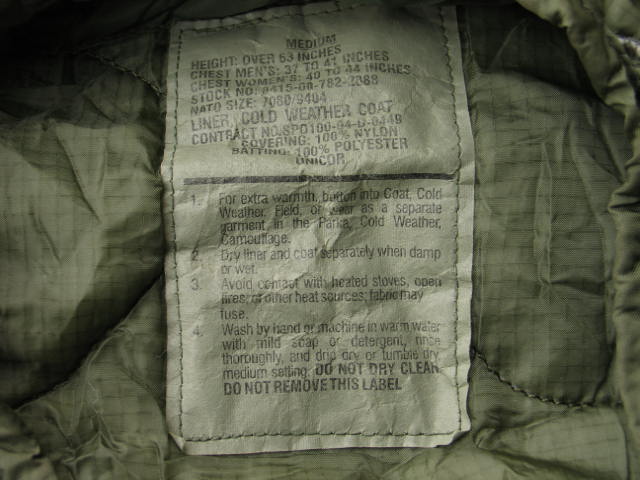 MEDIUM
HEIGHT: OVER 63 INCHES
CHEST MEN'S: 37 TO 41 INCHES
CHEST WOMEN'S: 40 TO 44 INCHES
STOCK NO.: 8415-00-782-2888
NATO SIZE: 7080/9404
LINER, COLD WEATHER COAT
CONTRACT NO. SPO100-04-D-0449
COVERING: 100% NYLON
BATTING: 100% POLYESTER
UNICOR
1. For extra warmth, button into Coat, Cold
Weather, Field, or wear as a separate
garment in the Parka, Cold Weather,
Camouflage.
2. Dry liner and coat separately when damp
or wet.
3. Avoid contact with heated stoves, open
fires, or other heat sources; fabric may
fuse.
4. Wash by hand or machine in warm water
with mild soap or detergent, rince
thoroughly, and drip dry or tumble dry,
medium setting. DO NOT DRY CLEAN.
DO NOT REMOVE THIS LABEL